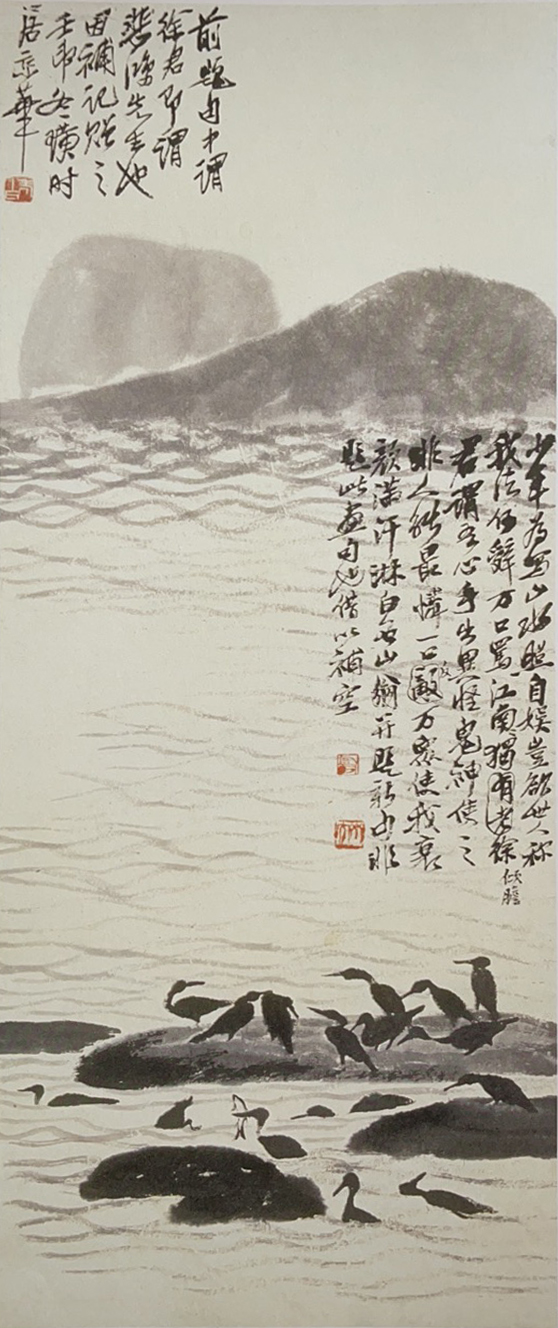 前題句中謂
徐君即謂
悲鴻先生也
因補記贈之
壬申冬璜時
居京華
少年為寫山水照自娛豈欲世人称
我法何辭万口罵江南獨有老徐
傾膽
君謂吾心手出異怪鬼神使之
非人能最憐一口敵万衆使我衰
反
顏滿汗淋白石山翁并題新句非
題此畫句也借以補空